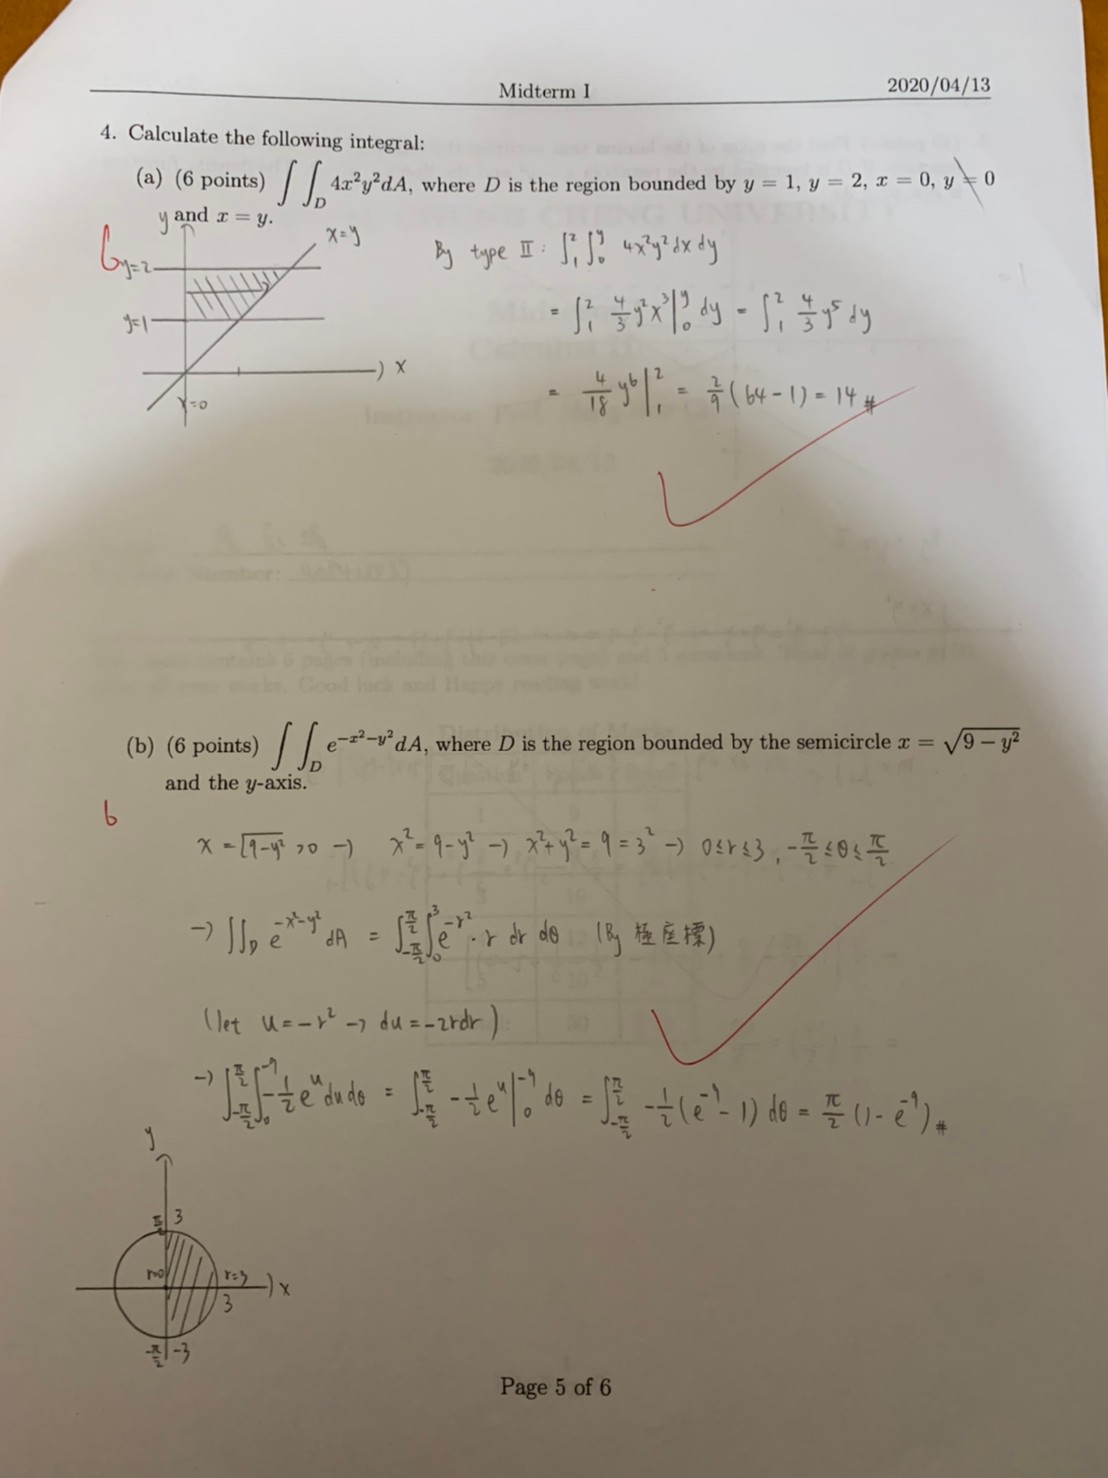 Midterm I 2020/04/13
4. Calculate the following integral:
(a) (6 points) ∫∫_D 4x²y²dA, where D is the region bounded by y = 1, y = 2, x = 0, y = 0
and x = y.
6
y
x=y
y=2
y=1
x
x=0
By type II : ∫₁² ∫₀^y 4x²y² dx dy
= ∫₁² 4/3 y²x³ |₀^y dy = ∫₁² 4/3 y⁵ dy
= 4/18 y⁶ |₁² = 2/9 (64-1) = 14 #
(b) (6 points) ∫∫_D e^(-x²-y²) dA, where D is the region bounded by the semicircle x = √(9 - y²)
and the y-axis.
6
x = √(9-y²) >0 → x² = 9-y² → x²+y² = 9 = 3² → 0≤r≤3 , -π/2 ≤θ≤ π/2
→ ∫∫_D e^(-x²-y²) dA = ∫_(-π/2)^(π/2) ∫₀³ e^(-r²) · r dr dθ (By 極座標)
(let u = -r² → du = -2rdr)
→ ∫_(-π/2)^(π/2) ∫₀^(-9) -1/2 e^u du dθ = ∫_(-π/2)^(π/2) -1/2 e^u |₀^(-9) dθ = ∫_(-π/2)^(π/2) -1/2 (e^(-9) - 1) dθ = π/2 (1 - e^(-9)) #
y
π/2 3
r=0 r=3 x
3
-π/2 -3
Page 5 of 6